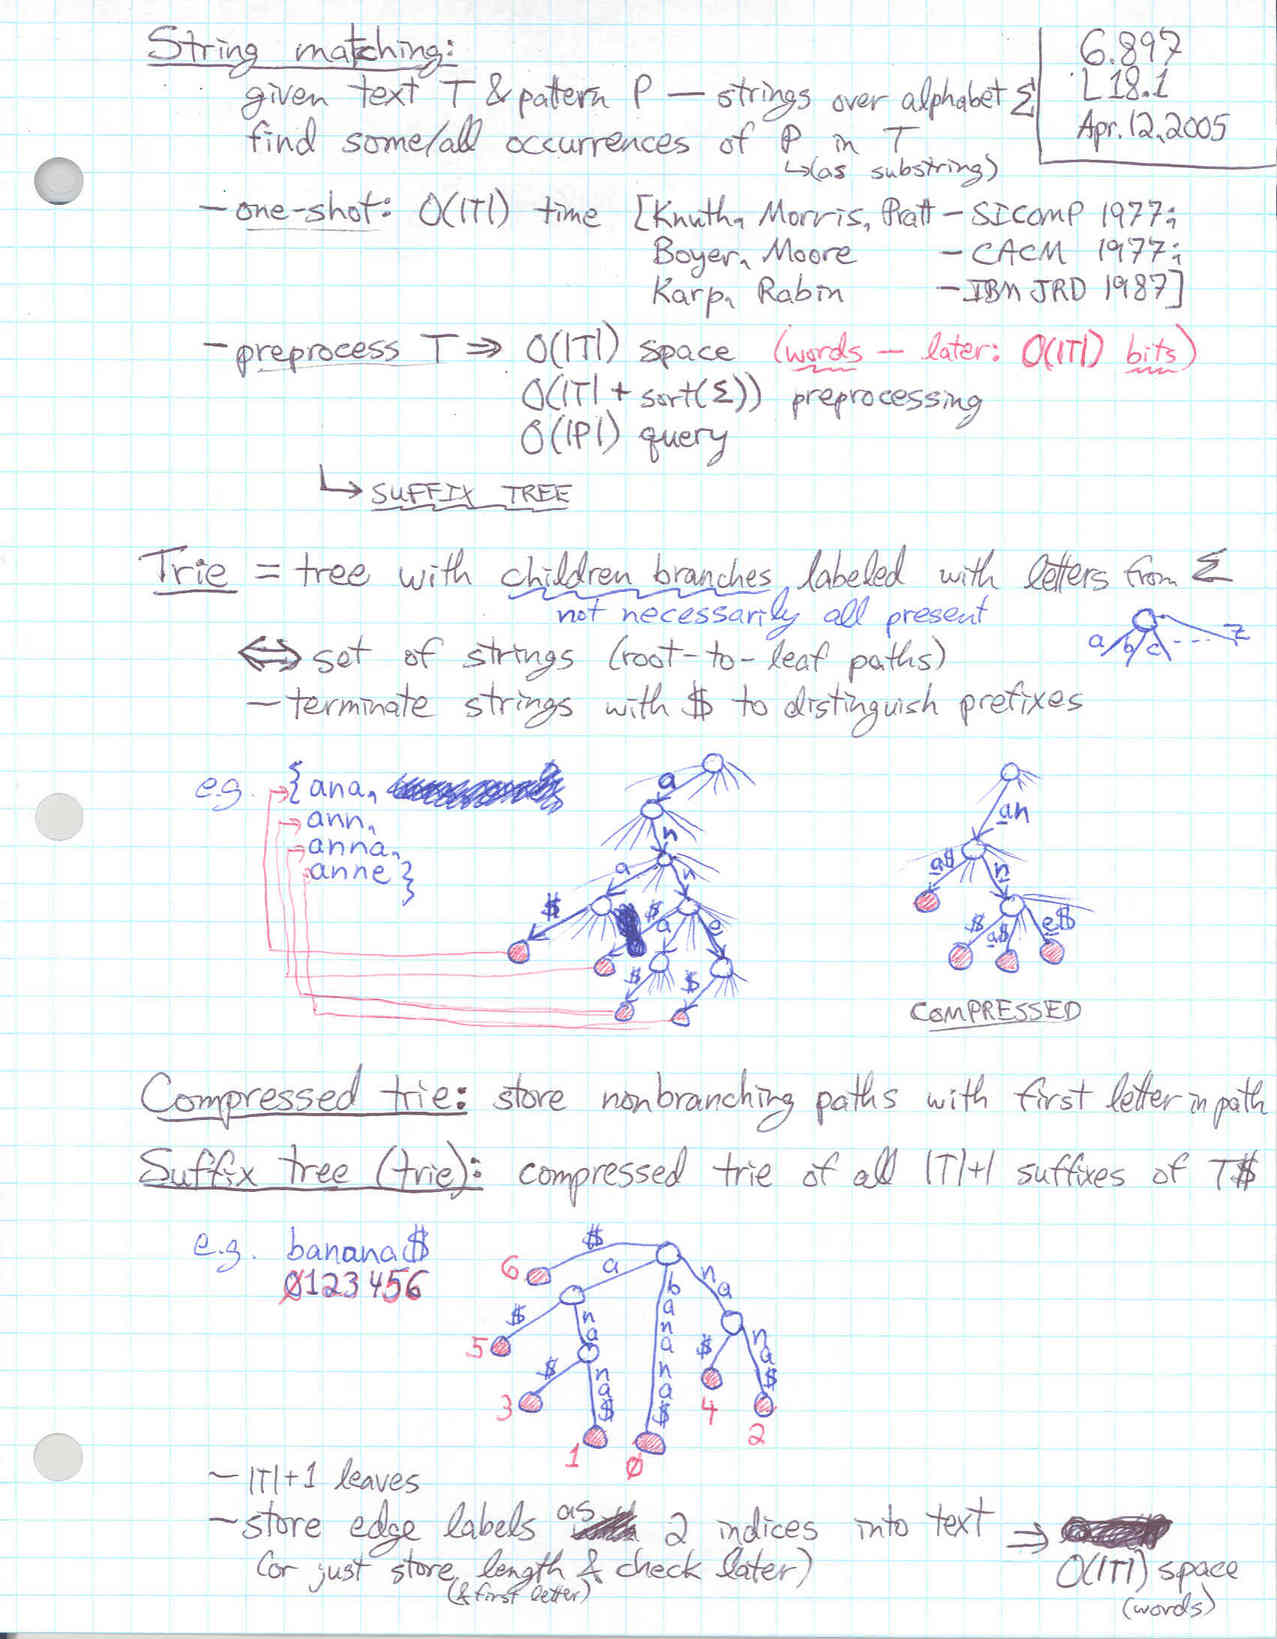 String matching:
6.897
L18.1
Apr. 12, 2005
given text T & pattern P — strings over alphabet Σ
find some/all occurrences of P in T
↳(as substring)
- one-shot: O(|T|) time [Knuth, Morris, Pratt - SICOMP 1977;
Boyer, Moore - CACM 1977;
Karp, Rabin - IBM JRD 1987]
- preprocess T ⇒ O(|T|) space (words - later: O(|T|) bits)
O(|T| + sort(Σ)) preprocessing
O(|P|) query
↳ SUFFIX TREE
Trie = tree with children branches labeled with letters from Σ
not necessarily all present
a b c ---- z
⇔ set of strings (root-to-leaf paths)
- terminate strings with $ to distinguish prefixes
e.g. {ana,
ann,
anna,
anne}
a
n
a n
$ $ a e
$ $
an
a$ n
$ a$ e$
COMPRESSED
Compressed trie: store nonbranching paths with first letter in path
Suffix tree (trie): compressed trie of all |T|+1 suffixes of T$
e.g. banana$
0123456
$
6 a banana$ na
$ na $ na$
5 $ na$
3 4 2
1 0
- |T|+1 leaves
- store edge labels as 2 indices into text ⇒
(or just store length & check later) O(|T|) space
(& first letter) (words)